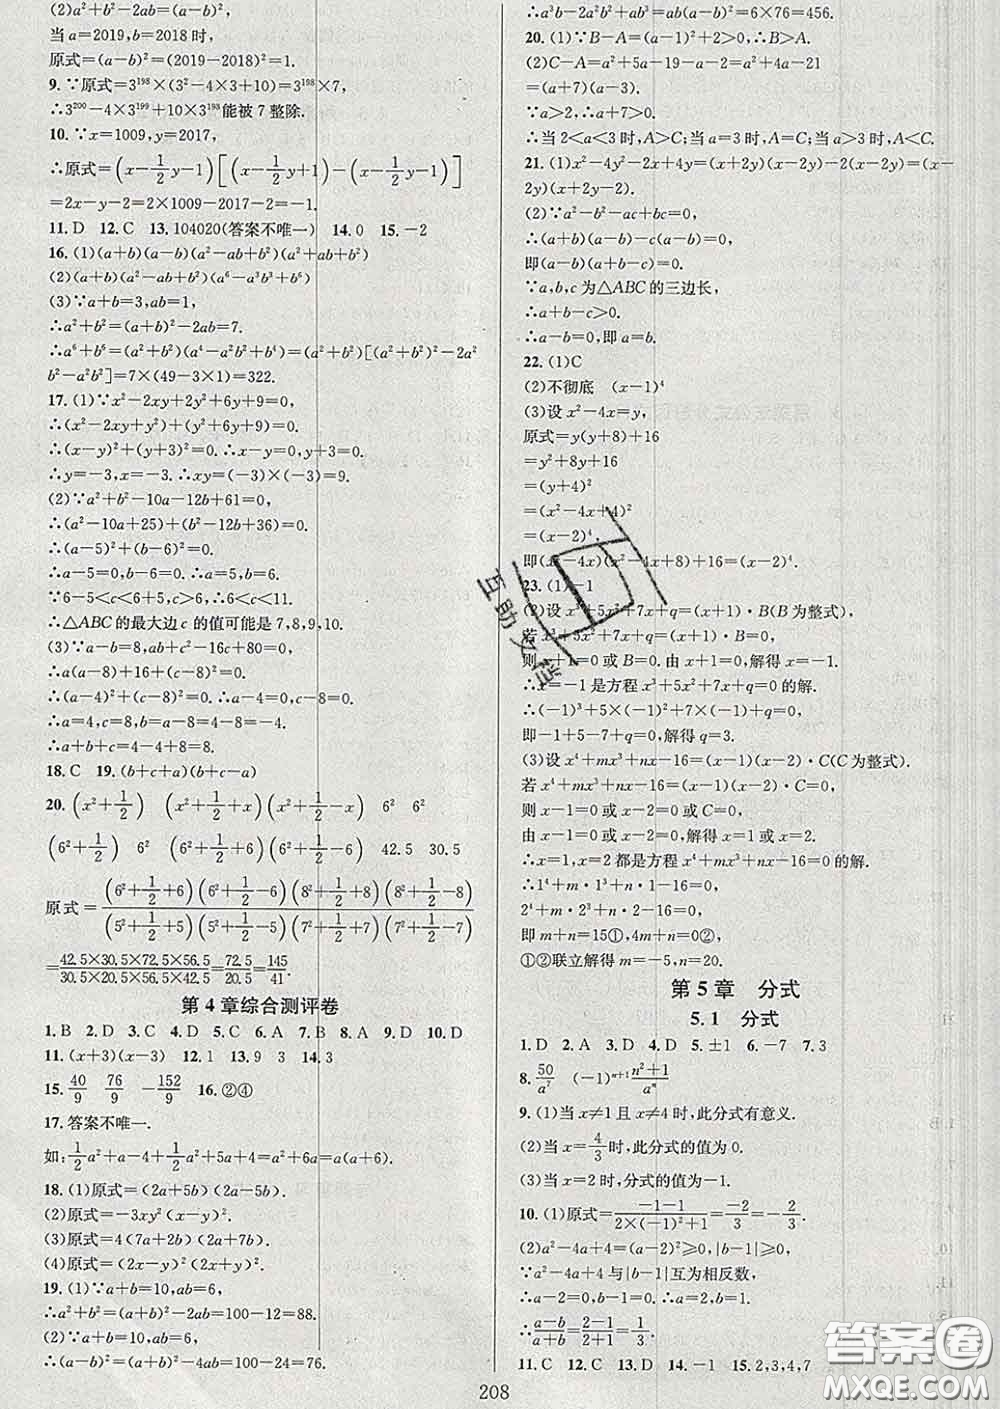 (2)a²+b²-2ab=(a-b)².
当a=2019,b=2018时,
原式=(a-b)²=(2019-2018)²=1.
9. ∵原式=3¹⁹⁸×(3²-4×3+10)=3¹⁹⁸×7,
∴3²⁰⁰-4×3¹⁹⁹+10×3¹⁹⁸能被7整除.
10. ∵x=1009,y=2017,
∴原式=(x-1/2y-1)[(x-1/2y+1)-(x-1/2y-1)]
=2x-y-2=2×1009-2017-2=-1.
11. D 12. C 13. 104020(答案不唯一) 14. 0 15. -2
16. (1)(a+b)(a-b)(a²-ab+b²)(a²+ab+b²)
(2)(a²+b²)(a⁴-a²b²+b⁴)(a⁶-a³b³+b⁶)
(3)∵a+b=3,ab=1,
∴a²+b²=(a+b)²-2ab=7.
∴a⁶+b⁶=(a²+b²)(a⁴-a²b²+b⁴)=(a²+b²)[(a²+b²)²-2a²b²-a²b²]=7×(49-3×1)=322.
17. (1)∵x²-2xy+2y²+6y+9=0,
∴(x²-2xy+y²)+(y²+6y+9)=0.
∴(x-y)²+(y+3)²=0.∴x-y=0,y+3=0.
∴y=-3,x=-3.∴xy=(-3)×(-3)=9.
(2)∵a²+b²-10a-12b+61=0,
∴(a²-10a+25)+(b²-12b+36)=0.
∴(a-5)²+(b-6)²=0.
∴a-5=0,b-6=0.∴a=5,b=6.
∵6-5<c<6+5,c>6,∴6<c<11.
∴△ABC的最大边c的值可能是7,8,9,10.
(3)∵a-b=8,ab+c²-16c+80=0,
∴a(a-8)+16+(c-8)²=0.
∴(a-4)²+(c-8)²=0.∴a-4=0,c-8=0.
∴a=4,c=8,b=a-8=4-8=-4.
∴a+b+c=4-4+8=8.
18. C 19. (b+c+a)(b+c-a)
20. (x²+1/2) (x²+1/2+x)(x²+1/2-x) 6² 6²
(6²+1/2) 6² (6²+1/2+6)(6²+1/2-6) 42.5 30.5
原式=(6²+1/2+6)(6²+1/2-6)(8²+1/2+8)(8²+1/2-8)/(5²+1/2+5)(5²+1/2-5)(7²+1/2+7)(7²+1/2-7)
=42.5×30.5×72.5×56.5/30.5×20.5×56.5×42.5=72.5/20.5=145/41.
第4章综合测评卷
1. B 2. D 3. C 4. D 5. C 6. A 7. B 8. A 9. D 10. D
11. (x+3)(x-3) 12. 1 13. 9 3 14. 3
15. 40/9 76/9 -152/9 16. ②④
17. 答案不唯一.
如:1/2a²+a-4+1/2a²+5a+4=a²+6a=a(a+6).
18. (1)原式=(2a+5b)(2a-5b).
(2)原式=-3xy²(x-y)².
(3)原式=4(7a+2b)(2a+7b).
(4)原式=(2x-y)²(2x+y)².
19. (1)∵a+b=10,ab=6,
∴a²+b²=(a+b)²-2ab=100-12=88.
(2)∵a+b=10,ab=6,
∴(a-b)²=(a+b)²-4ab=100-24=76.
∴a³b-2a²b²+ab³=ab(a-b)²=6×76=456.
20. (1)∵B-A=(a-1)²+2>0,∴B>A.
(2)C-A=a²+5a-19-a-2=a²+4a-21
=(a+7)(a-3).
∵a>2,∴a+7>0.
∴当2<a<3时,A>C;当a=3时,A=C;当a>3时,A<C.
21. (1)x²-4y²-2x+4y=(x+2y)(x-2y)-2(x-2y)=(x-2y)(x+2y-2).
(2)∵a²-b²-ac+bc=0,
∴(a+b)(a-b)-c(a-b)=0.
即(a-b)(a+b-c)=0.
∵a,b,c为△ABC的三边长,
∴a+b-c>0.
∴a-b=0,即a=b.
22. (1)C
(2)不彻底 (x-1)⁴
(3)设x²-4x=y,
原式=y(y+8)+16
=y²+8y+16
=(y+4)²
=(x²-4x+4)²
=(x-2)⁴.
即(x²-4x)(x²-4x+8)+16=(x-2)⁴.
23. (1)-1
(2)设x³+5x²+7x+q=(x+1)·B(B为整式),
若x³+5x²+7x+q=(x+1)·B=0,
则x+1=0或B=0.由x+1=0,解得x=-1.
∴x=-1是方程x³+5x²+7x+q=0的解.
∴(-1)³+5×(-1)²+7×(-1)+q=0.
即-1+5-7+q=0,解得q=3.
(3)设x⁴+mx³+nx-16=(x-1)(x-2)·C(C为整式).
若x⁴+mx³+nx-16=(x-1)(x-2)·C=0,
则x-1=0或x-2=0或C=0;
由x-1=0或x-2=0,解得x=1或x=2.
∴x=1,x=2都是方程x⁴+mx³+nx-16=0的解.
∴1⁴+m·1³+n·1-16=0,
2⁴+m·2³+n·2-16=0,
即m+n=15①,4m+n=0②,
①②联立解得m=-5,n=20.
第5章 分式
5.1 分式
1. D 2. A 3. D 4. D 5. ±1 6. -7 7. 3
8. 50/a⁷ (-1)ⁿ⁺¹n²+1/aⁿ
9. (1)当x≠1且x≠4时,此分式有意义.
(2)当x=4/3时,此分式的值为0.
(3)当x=2时,分式的值为-1.
10. (1)原式=-1-1/2×(-1)²+1=-2/3=-2/3.
(2)a²-4a+4=(a-2)²≥0,|b-1|≥0,
∵a²-4a+4与|b-1|互为相反数,
∴a-2=0,b-1=0.∴a=2,b=1.
∴a-b/a+b=2-1/2+1=1/3.
11. C 12. C 13. D 14. -1 15. 2,3,4,7
208
互助文档
答案圈
MXQE.COM